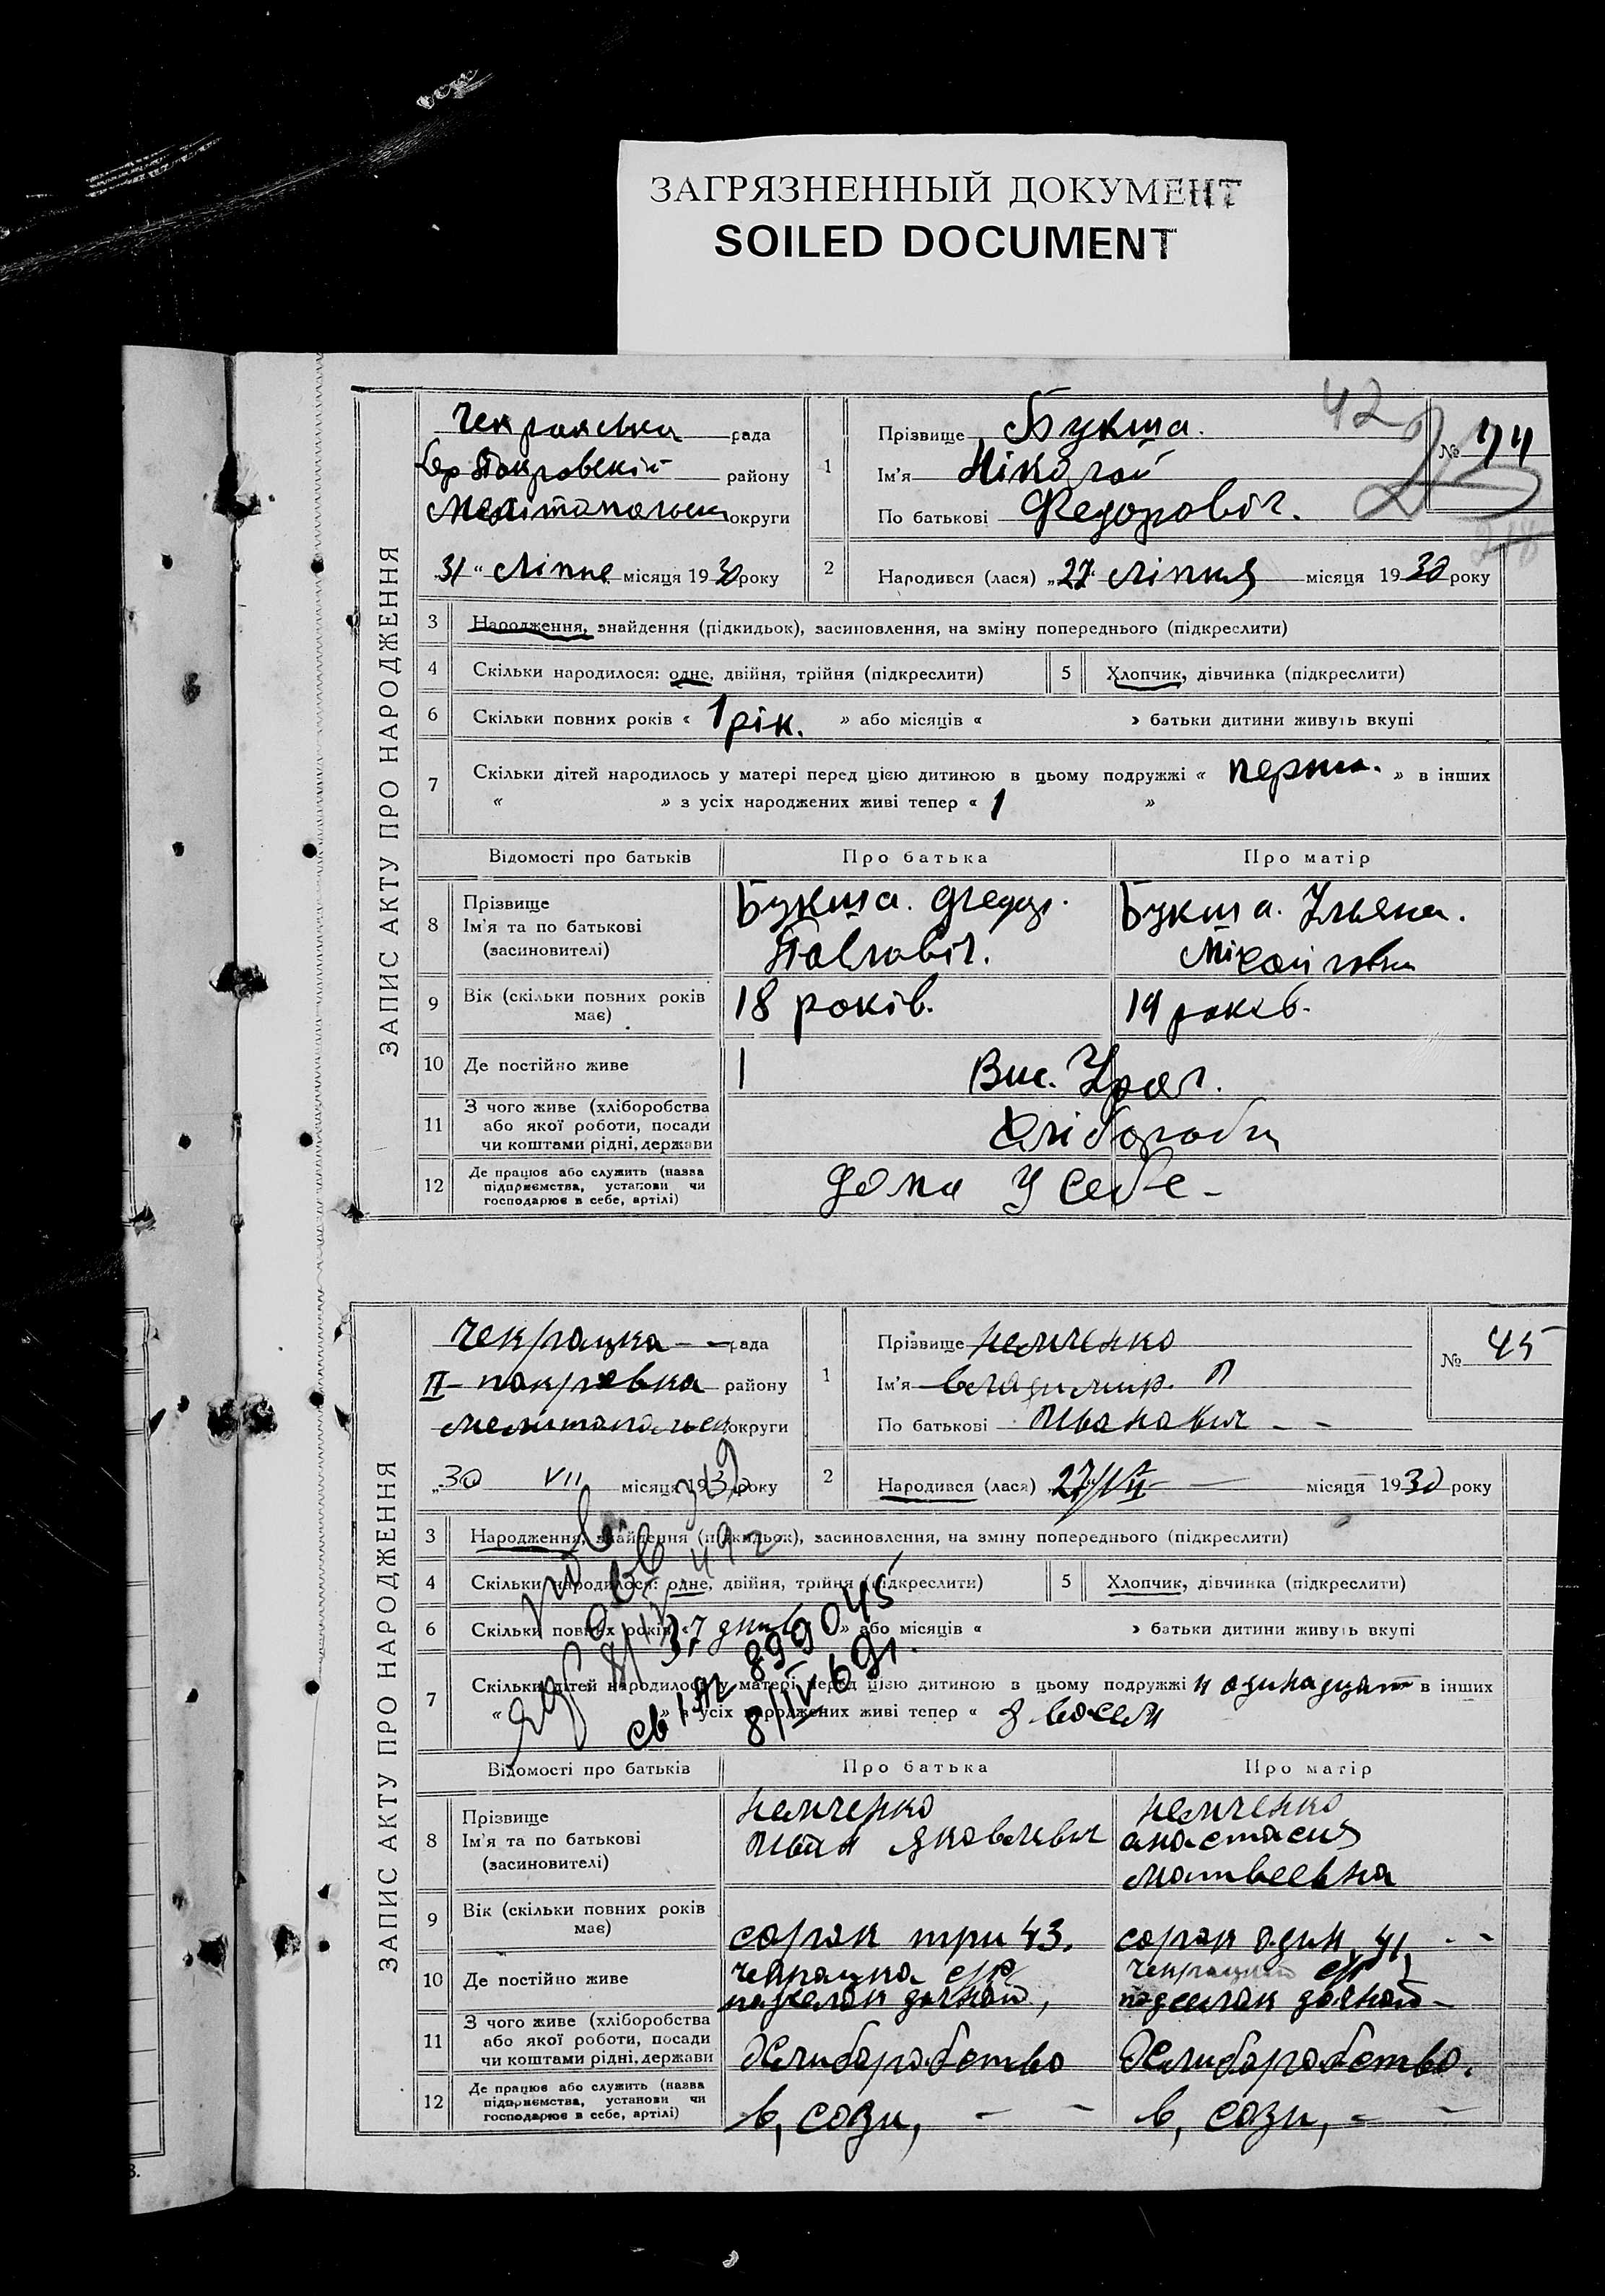 ЗАГРЯЗНЕННЫЙ ДОКУМЕНТ
SOILED DOCUMENT
ЗАПИС АКТУ ПРО НАРОДЖЕННЯ
рада
району
округи
31 " Ліпня місяця 1930 року
42
№
1 Прізвище Букша.
Ім'я Ніколай
По батькові Федоровіч.
2 Народився (лася) „27 Ліпня місяця 1930 року
3 Народження, знайдення (підкидьок), засиновлення, на зміну попереднього (підкреслити)
4 Скільки народилося: одне, двійня, трійня (підкреслити)
5 Хлопчик, дівчинка (підкреслити)
6 Скільки повних років « 1 рік. » або місяців « » батьки дитини живуть вкупі
7 Скільки дітей народилось у матері перед цією дитиною в цьому подружжі « » в інших
« » з усіх народжених живі тепер « 1 »
Відомості про батьків Про батька Про матір
8 Прізвище
Ім'я та по батькові
(засиновителі)
Букша. Федор.
Павловіч.
Букша. Ульяна.
9 Вік (скільки повних років
має)
18 років. 19 років.
10 Де постійно живе
11 З чого живе (хліборобства
або якої роботи, посади
чи коштами рідні, держави
12 Де працює або служить (назва
підприємства, установи чи
господарює в себе, артілі)
дома у себе -
ЗАПИС АКТУ ПРО НАРОДЖЕННЯ
Чекрацка - - рада
II - покровка району
округи
„30 VII місяця 1930 року
№ 45
1 Прізвище Немченко
Ім'я Владимир.
По батькові Иванавич - -
2 Народився (лася) 27/VII - місяця 1930 року
3 Народження, знайдення (підкидьок), засиновлення, на зміну попереднього (підкреслити)
4 Скільки народилося: одне, двійня, трійня (підкреслити)
5 Хлопчик, дівчинка (підкреслити)
6 Скільки повних років « » або місяців « » батьки дитини живуть вкупі
7 Скільки дітей народилось у матері перед цією дитиною в цьому подружжі 11 одинадцат в інших
« » з усіх народжених живі тепер « 8 восем
8/IV 69г.
Відомості про батьків Про батька Про матір
8 Прізвище
Ім'я та по батькові
(засиновителі)
Немченко
Иван Яковлевич
Немченко
анастасия
Матвеевна
9 Вік (скільки повних років
має)
сорак три 43. сорак один 41, - -
10 Де постійно живе
11 З чого живе (хліборобства
або якої роботи, посади
чи коштами рідні, держави
Хлибаработво Хлибаработво.
12 Де працює або служить (назва
підприємства, установи чи
господарює в себе, артілі)
в, сози, - - в, сози, - -